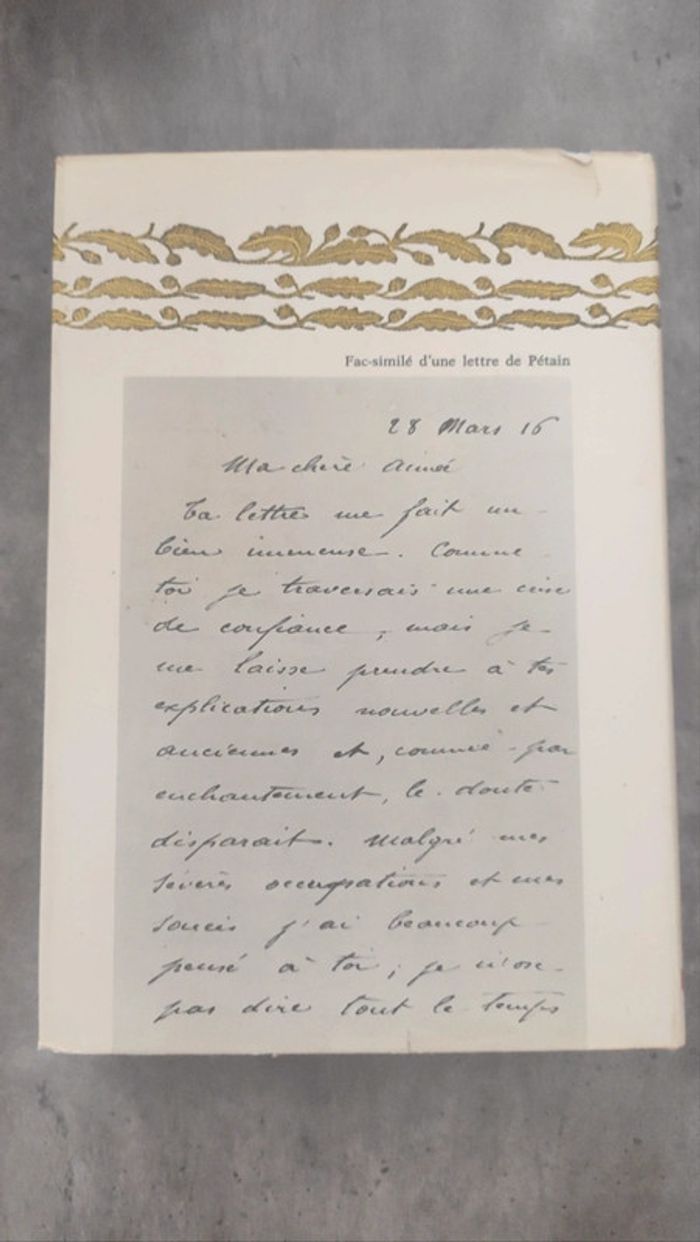 Fac-similé d'une lettre de Pétain
28 Mars 16
Ma chère aimée
Ta lettre me fait un
bien immense. Comme
toi je traversais une crise
de confiance, mais je
me laisse prendre à tes
explications nouvelles et
anciennes et, comme par
enchantement, le doute
disparait. Malgré mes
sévères occupations et mes
soucis j'ai beaucoup
pensé à toi; je n'ose
pas dire tout le temps